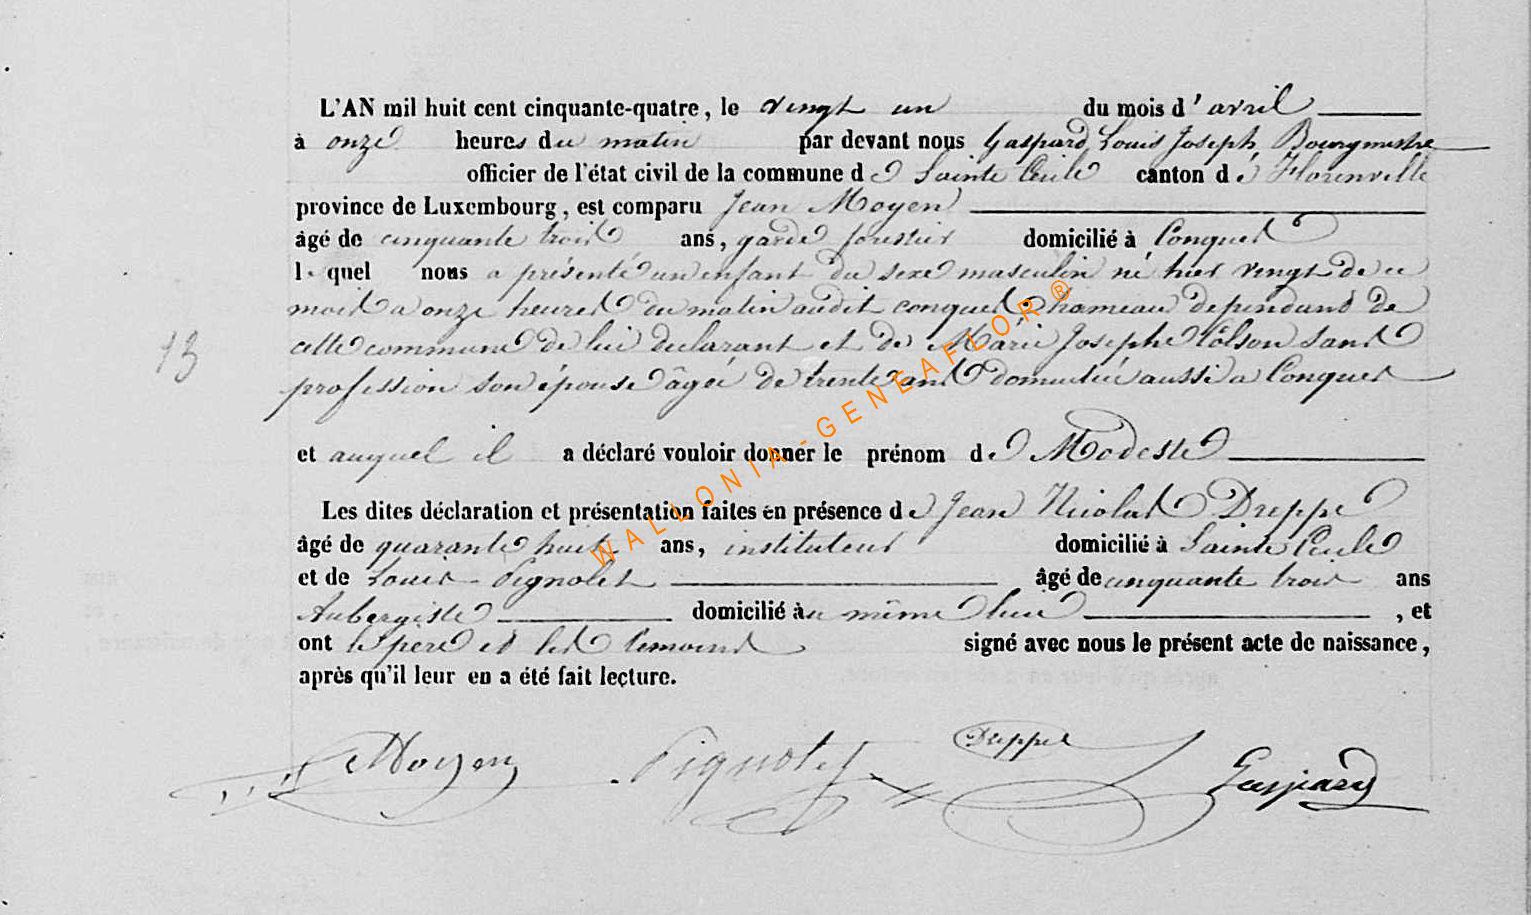 L'AN mil huit cent cinquante-quatre, le vingt un du mois d'avril
à onze heures du matin par devant nous Gaspard Louis Joseph, Bourgmestre
officier de l'état civil de la commune de Sainte Cecile canton de Florenville
province de Luxembourg, est comparu Jean Moyen
âgé de cinquante trois ans, garde forestier domicilié à Conques
lequel nous a présenté un enfant du sexe masculin né hier vingt de ce
mois a onze heures du matin audit conques hameau dependant de
13 cette commune de lui declarant et de Marie Josephe Colson sans
profession son épouse âgée de trente ans domiciliée aussi a Conques
et auquel il a déclaré vouloir donner le prénom de Modeste
Les dites déclaration et présentation faites en présence de Jean Nicolas Dreppe
âgé de quarante huit ans, instituteur domicilié à Sainte Cecile
et de Louis Pignolet âgé de cinquante trois ans
Aubergiste domicilié au même lieu, et
ont le pere et les temoins signé avec nous le présent acte de naissance,
après qu'il leur en a été fait lecture.
Moyen Pignolet Dreppe Gaspard
WALLONIA-GENEAFLOR ®